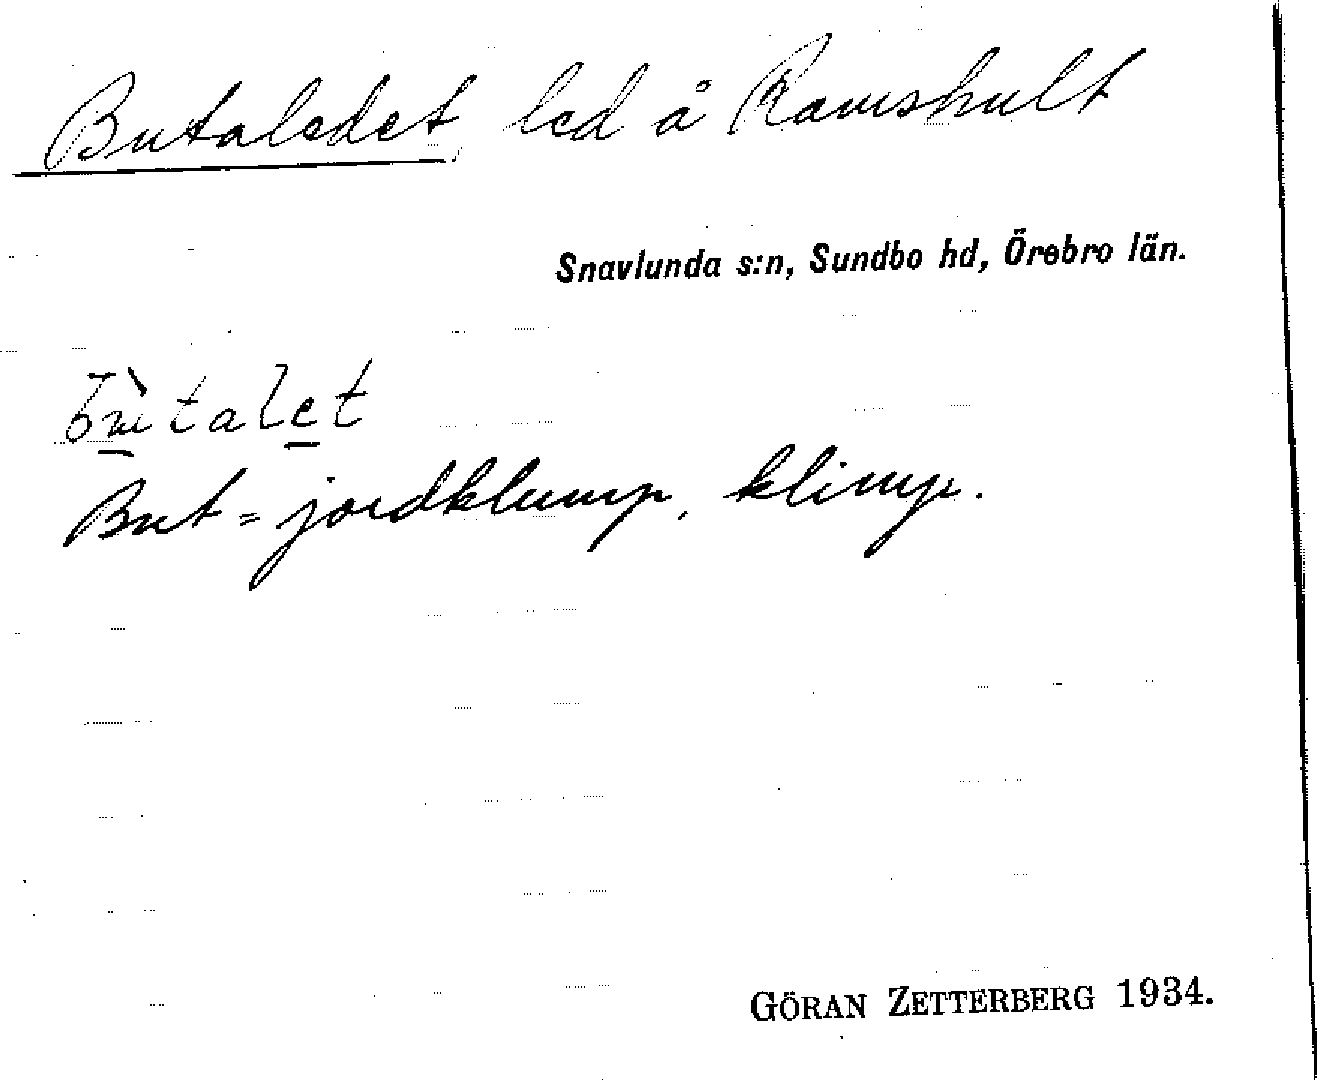 Butaledet, led å Ramshult
Snavlunda s:n, Sundbo hd, Örebro län.
bùtalet
But = jordklump, klimp.
GÖRAN ZETTERBERG 1934.